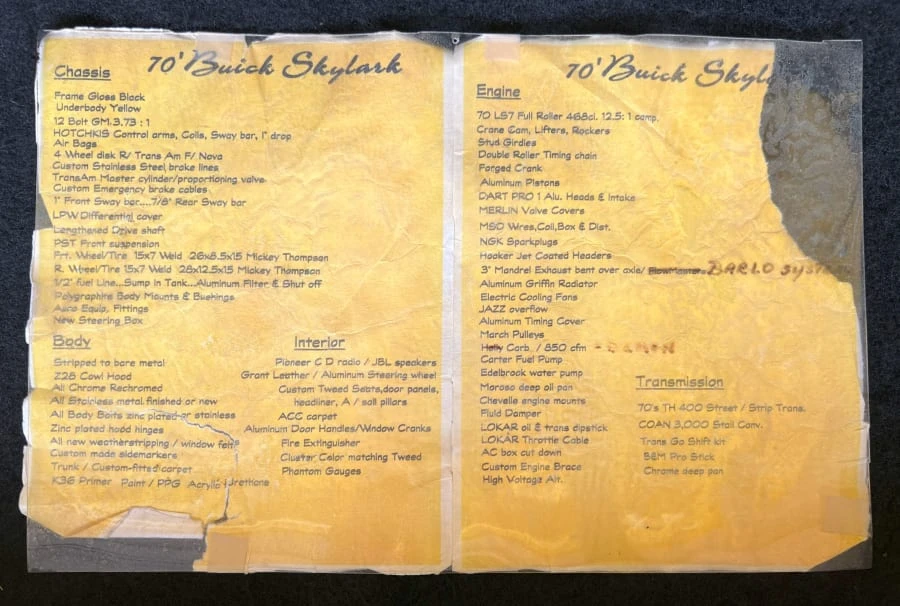 70' Buick Skylark
Chassis
Frame Gloss Black
Underbody Yellow
12 Bolt GM.3.73 : 1
HOTCHKIS Control arms, Coils, Sway bar, 1" drop
Air Bags
4 Wheel disk R/ Trans Am F/ Nova
Custom Stainless Steel brake lines
TransAm Master cylinder/proportioning valve
Custom Emergency brake cables
1" Front Sway bar....7/8" Rear Sway bar
LPW Differential cover
Lengthened Drive shaft
PST Front suspension
Frt. Wheel/Tire 15x7 Weld 26x8.5x15 Mickey Thompson
R. Wheel/Tire 15x7 Weld 28x12.5x15 Mickey Thompson
1/2" fuel Line...Sump in Tank...Aluminum Filter & Shut off
Polygraphite Body Mounts & Bushings
Aero Equip. Fittings
New Steering Box
Body
Stripped to bare metal
Z28 Cowl Hood
All Chrome Rechromed
All Stainless metal finished or new
All Body Bolts zinc plated or stainless
Zinc plated hood hinges
All new weatherstripping / window felts
Custom made sidemarkers
Trunk / Custom-fitted carpet
K36 Primer Paint / PPG Acrylic Urethane
Interior
Pioneer C D radio / JBL speakers
Grant Leather / Aluminum Steering wheel
Custom Tweed Seats,door panels,
headliner, A / sail pillors
ACC carpet
Aluminum Door Handles/Window Cranks
Fire Extinguisher
Cluster Color matching Tweed
Phantom Gauges
70' Buick Skyla
Engine
70 LS7 Full Roller 468ci. 12.5: 1 comp.
Crane Cam, Lifters, Rockers
Stud Girdles
Double Roller Timing chain
Forged Crank
Aluminum Pistons
DART PRO 1 Alu. Heads & Intake
MERLIN Valve Covers
MSD Wires,Coil,Box & Dist.
NGK Sparkplugs
Hooker Jet Coated Headers
3" Mandrel Exhaust bent over axle/ FlowMasters BARLO SYSTEM
Aluminum Griffin Radiator
Electric Cooling Fans
JAZZ overflow
Aluminum Timing Cover
March Pulleys
Holly Carb. / 850 cfm - DEMON
Carter Fuel Pump
Edelbrook water pump
Moroso deep oil pan
Chevelle engine mounts
Fluid Damper
LOKAR oil & trans dipstick
LOKAR Throttle Cable
AC box cut down
Custom Engine Brace
High Voltage Alt.
Transmission
70's TH 400 Street / Strip Trans.
COAN 3,000 Stall Conv.
Trans Go Shift kit
B&M Pro Stick
Chrome deep pan